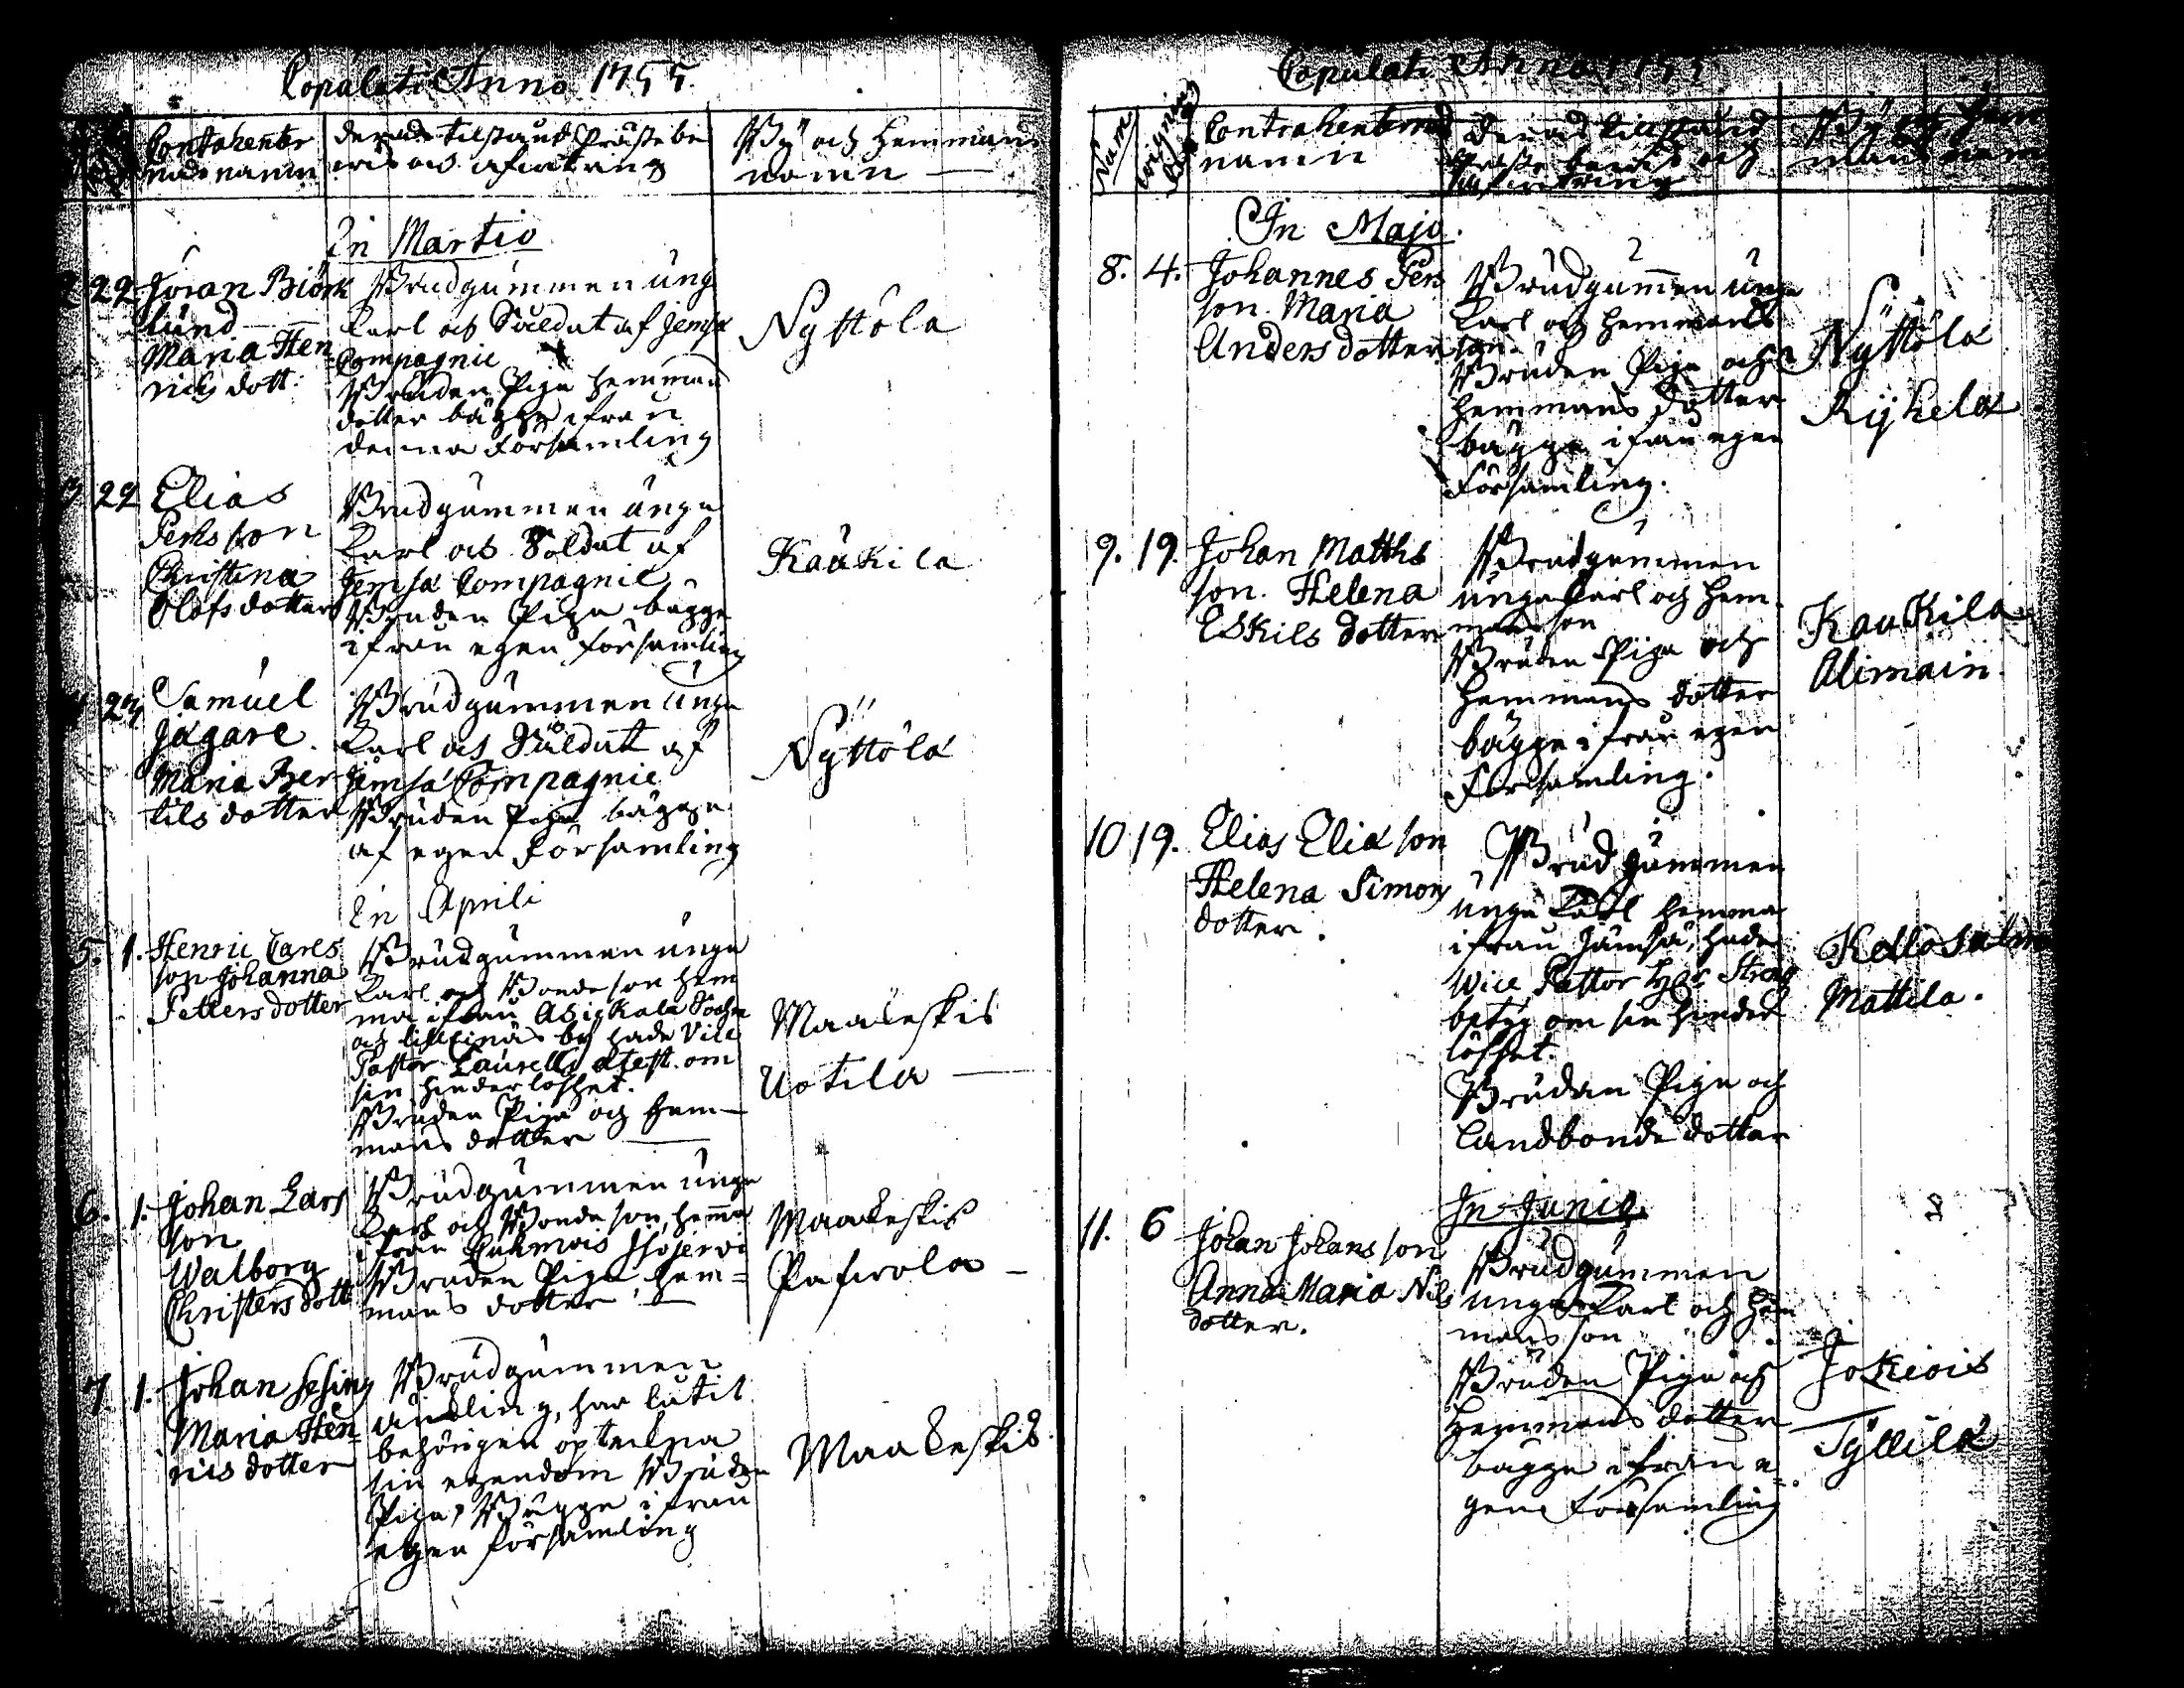 Copulati Anno 1755.
Contrahenter
nas namn
deras tilstånd Präste be
wis och afwittring
By och Hemmans
namn
In Martio
2 22 Jöran Biörk
lund
Maria Hen
richs dott:
Brudgummen ung
Karl och Såldat af Jemsä
Compagnie
Bruden Piga hemmans
dotter bägge ifrån
denna Församling
Nyttölä
3 22 Elias
Perhsson
Christina
Olofs dotter
Brudgummen unga
Karl och Soldat af
Jemsä Compagnie
Bruden Piga bägge
ifrån egen församling
Kaukila
4 23 Samuel
Jägare.
Maria Ber
tils dotter
Brudgummen unga
Karl och Såldat af
Jemsä Compagnie
Bruden Piga bägge
af egen Församling
Nyttölä
In Aprili
5. 1. Henric Carls
son Johanna
Petters dotter
Brudgummen unga
Karl och Bonde son hem
ma ifrån Asickala Sochn
och by hade Vice
Pastor Laurells attest. om
sin hinderlöshet.
Bruden Piga och hem-
mans dotter
Maakeskis
Uotila
6. 1. Johan Lars
son
Walborg
Christers dott
Brudgummen unga
Karl och Bonde son, hemma
ifrån Kuhmois
Bruden Piga hem=
mans dotter
Maakeskis
Pafwola
7. 1. Johan
Maria Hen=
rics dotter
Brudgummen
änkling, har låtit
behörigen optekna
sin egendom Bruden
Piga, Bägge ifrån
egen församling
Maakeskis.
Copulati Anno 1755
Num
wignings
Contrahenternas
namn
Deras tillstånd
Präste bewis och
afwittring
By och Hem
mans namn
In Majo.
8. 4. Johannes Pers
son. Maria
Anders dotter
Brudgummen unga
Karl och hemmans
son.
Bruden Piga och
hemmans dotter
bägge ifrån egen
Församling.
Nyttölä
Ryhelä
9. 19. Johan Matths
son. Helena
Eskils dotter
Brudgummen
unga Karl och hem
mans son
Bruden Piga och
hemmans dotter
bägge ifrån egen
Församling.
Kaukila
Alimain.
10 19. Elias Elia son
Helena Simons
dotter.
Brudgummen
unga Karl hemma
ifrån Jämsä, hade
Wice Pastor
betyg om sin hinder
löshet.
Bruden Piga och
Landbonde dotter
Kellosalm
Mattila.
In Junio
11. 6 Johan Johans son
Anna Maria Nils
dotter.
Brudgummen
unga Karl och hem
mans son
Bruden Piga och
Hemmans dotter
bägge ifrån e=
gen Församling
Jokiois
Tyllilä